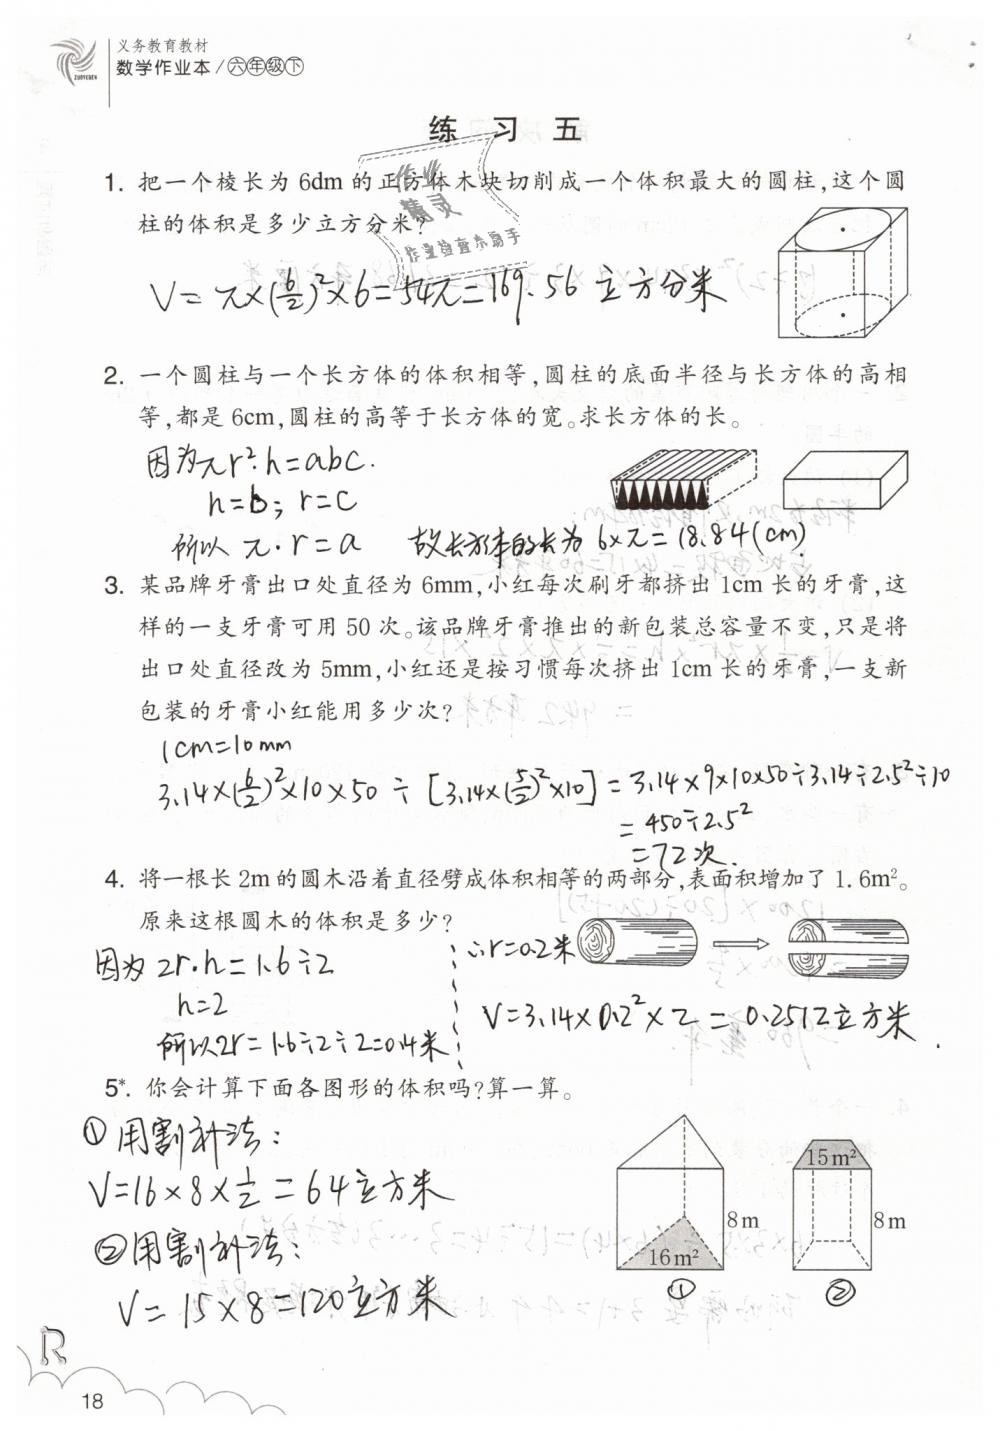 义务教育教材
数学作业本/六年级下
练 习 五
1. 把一个棱长为 6dm 的正方体木块切削成一个体积最大的圆柱,这个圆
柱的体积是多少立方分米?
作业
精灵
作业检查小助手
V=π×(6/2)²×6=54π=169.56 立方分米
2. 一个圆柱与一个长方体的体积相等,圆柱的底面半径与长方体的高相
等,都是 6cm,圆柱的高等于长方体的宽。求长方体的长。
因为πr²·h=abc.
h=b; r=c
所以 π·r=a 故长方体的长为 6×π=18.84(cm)
3. 某品牌牙膏出口处直径为 6mm,小红每次刷牙都挤出 1cm 长的牙膏,这
样的一支牙膏可用 50 次。该品牌牙膏推出的新包装总容量不变,只是将
出口处直径改为 5mm,小红还是按习惯每次挤出 1cm 长的牙膏,一支新
包装的牙膏小红能用多少次?
1cm=10mm
3.14×(6/2)²×10×50÷[3.14×(5/2)²×10]=3.14×9×10×50÷3.14÷2.5²÷10
=450÷2.5²
=72次.
4. 将一根长 2m 的圆木沿着直径劈成体积相等的两部分,表面积增加了 1.6m²。
原来这根圆木的体积是多少?
因为 2r·h=1.6÷2
h=2
所以2r=1.6÷2÷2=0.4米
∴r=0.2米
V=3.14×0.2²×2=0.2512立方米
5*. 你会计算下面各图形的体积吗?算一算。
①用割补法:
V=16×8×1/2=64立方米
②用割补法:
V=15×8=120立方米
16m²
8m
①
15m²
8m
②
18